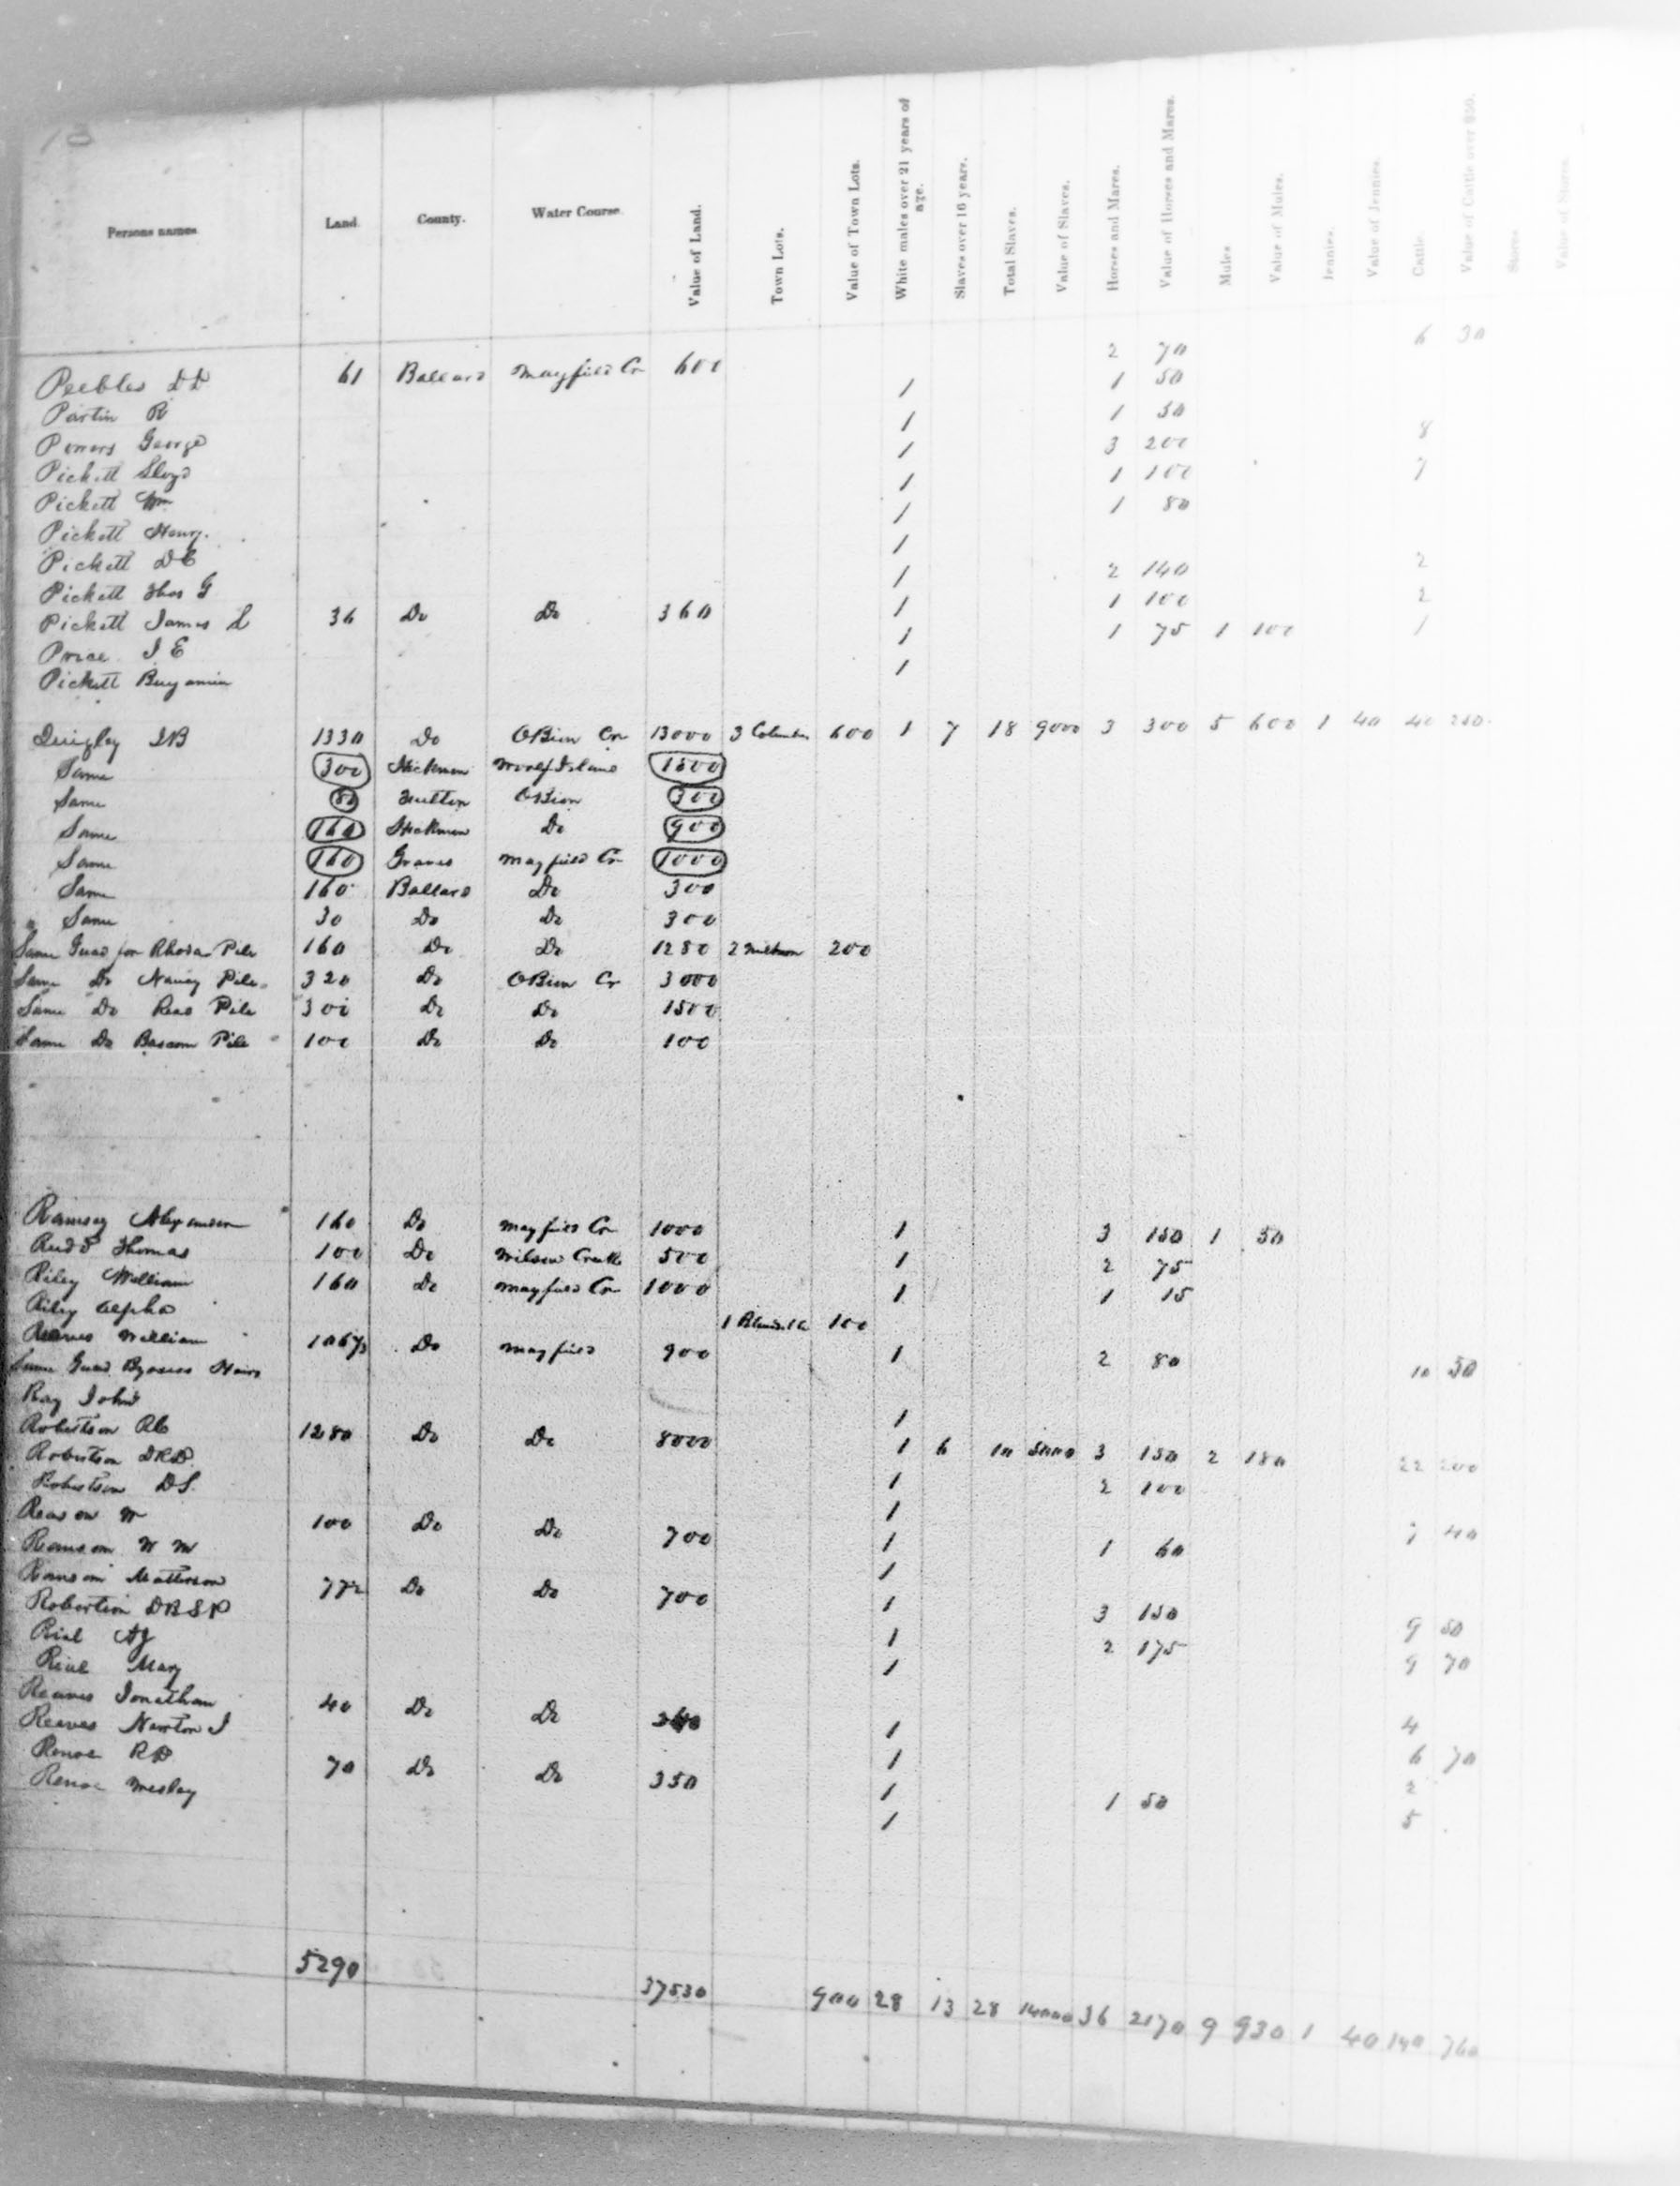 13
Persons names. Land. County. Water Course. Value of Land. Town Lots. Value of Town Lots. White males over 21 years of age. Slaves over 16 years. Total Slaves. Value of Slaves. Horses and Mares. Value of Horses and Mares. Mules Value of Mules. Jennies. Value of Jennies. Cattle. Value of Cattle over $50. Stores Value of Stores.
Peebles DD 61 Ballard Mayfield Cr 600 2 70 6 30
Partin R 1 1 50
Powers George 1 1 50
Pickett Lloyd 1 3 200 8
Pickett Wm 1 1 100 7
Pickett Henry. 1 1 80
Pickett DC 1
Pickett Thos G 1 2 140 2
Pickett James L 36 Do Do 360 1 1 100 2
Price J E 1 1 75 1 100 1
Pickett Benjamin 1
Quigley JB 1330 Do OBion Cr 13000 3 Columbus 600 1 7 18 9000 3 300 5 600 1 40 40 250
Same 300 Hickman Wolf Island 1500
Same 80 Fulton OBion 300
Same 160 Hickman Do 900
Same 160 Graves Mayfield Cr 1000
Same 160 Ballard Do 300
Same 30 Do Do 300
Same Guad for Rhoda Pile 160 Do Do 1280 2 Milburn 200
Same Do Nancy Pile 320 Do OBion Cr 3000
Same Do Pile 300 Do Do 1500
Same Do Bascom Pile 100 Do Do 100
Ramsey Alexander 160 Do Mayfield Cr 1000 1 3 150 1 50
Rudd Thomas 100 Do Wilson Creek 500 1 2 75
Riley William 160 Do Mayfield Cr 1000 1 1 15
Riley Alpha 1 Blandville 100
Reaves William 106⅔ Do Mayfield 900 1 2 80 10 50
Same Guad Heirs
Ray John 1
Robertson RC 1280 Do Do 8000 1 6 10 5000 3 150 2 180 22 200
Robertson DRD. 1 2 100
Robertson DS. 1
Reason W 100 Do Do 700 1 1 60 7 40
Ransom W M 1
Ransom Matterson 77½ Do Do 700 1 3 150 9 50
Robertson DBSP 1 2 175 9 70
Rial AJ 1
Rial Mary
Reaves Jonathan 40 Do Do 1 4
Reaves Newton J 1 6 70
Renoe RD 70 Do Do 350 1 2
Renoe Wesley 1 1 50 5
5290 37530 900 28 13 28 14000 36 2170 9 930 1 40 140 760